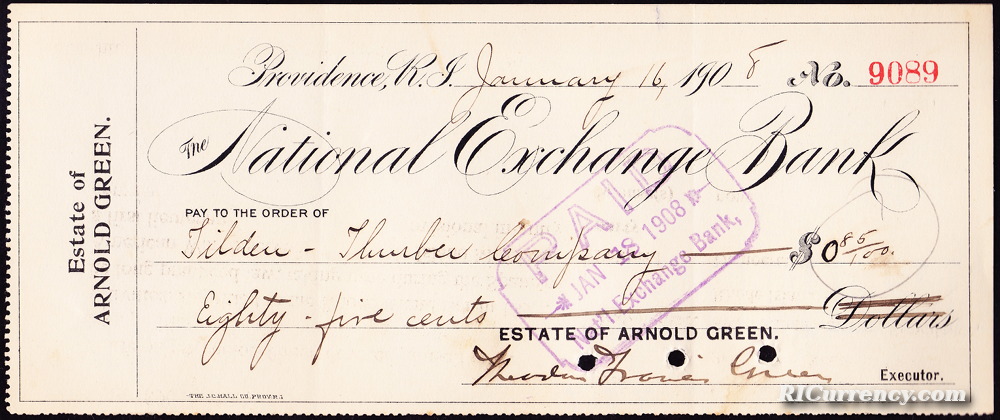 Estate of
ARNOLD GREEN.
Providence, R.I. January 16, 1908 No. 9089
The National Exchange Bank
PAY TO THE ORDER OF
Tilden - Thurber Company $0 85/100.
Eighty-five cents Dollars
PAID
JAN 18 1908
Nat'l Exchange Bank,
ESTATE OF ARNOLD GREEN.
Theodore Francis Green
Executor.
RICurrency.com